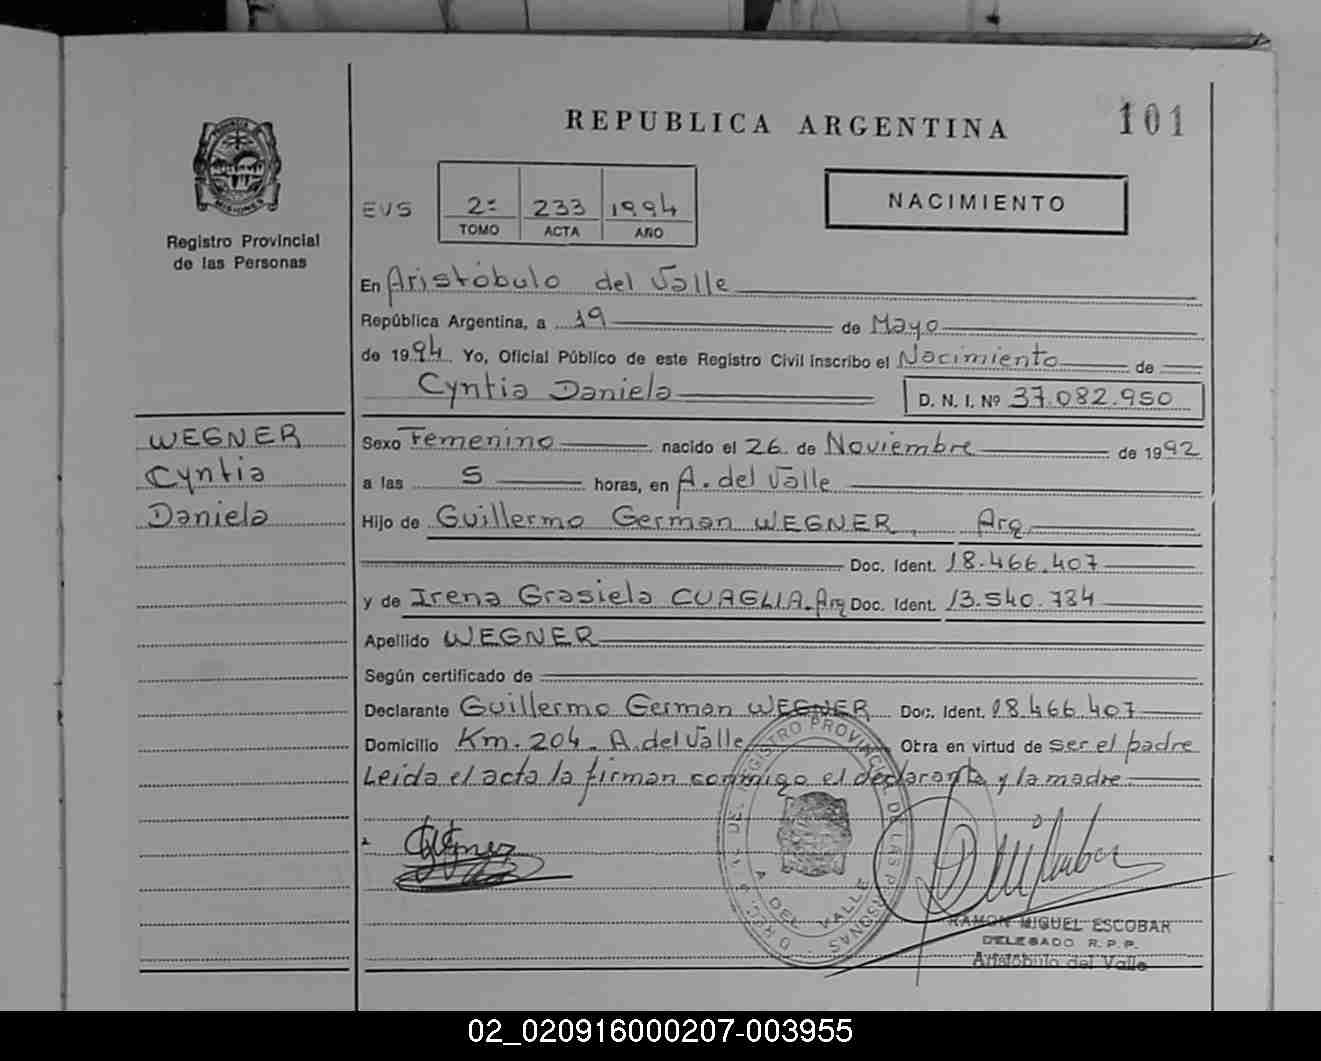 REPUBLICA ARGENTINA
101
Registro Provincial
de las Personas
EVS
2º 233 1994
TOMO ACTA AÑO
NACIMIENTO
En Aristóbulo del Valle
República Argentina, a 19 de Mayo
de 1994 Yo, Oficial Público de este Registro Civil inscribo el Nacimiento de
Cyntia Daniela D. N. I. Nº 37.082.950
WEGNER
Cyntia
Daniela
Sexo Femenino nacido el 26 de Noviembre de 1992
a las 5 horas, en A. del Valle
Hijo de Guillermo German WEGNER, Arg
Doc. Ident. 18.466.407
y de Irena Grasiela CUAGLIA. Arg Doc. Ident. 13.540.784
Apellido WEGNER
Según certificado de
Declarante Guillermo German WEGNER Doc. Ident. 18.466.407
Domicilio Km. 204. A. del Valle Obra en virtud de ser el padre
Leida el acta la firman conmigo el declarante y la madre
REGISTRO PROVINCIAL DE LAS PERSONAS
A. DEL VALLE
RAMON MIGUEL ESCOBAR
DELEGADO R. P. P.
Aristóbulo del Valle
02_020916000207-003955